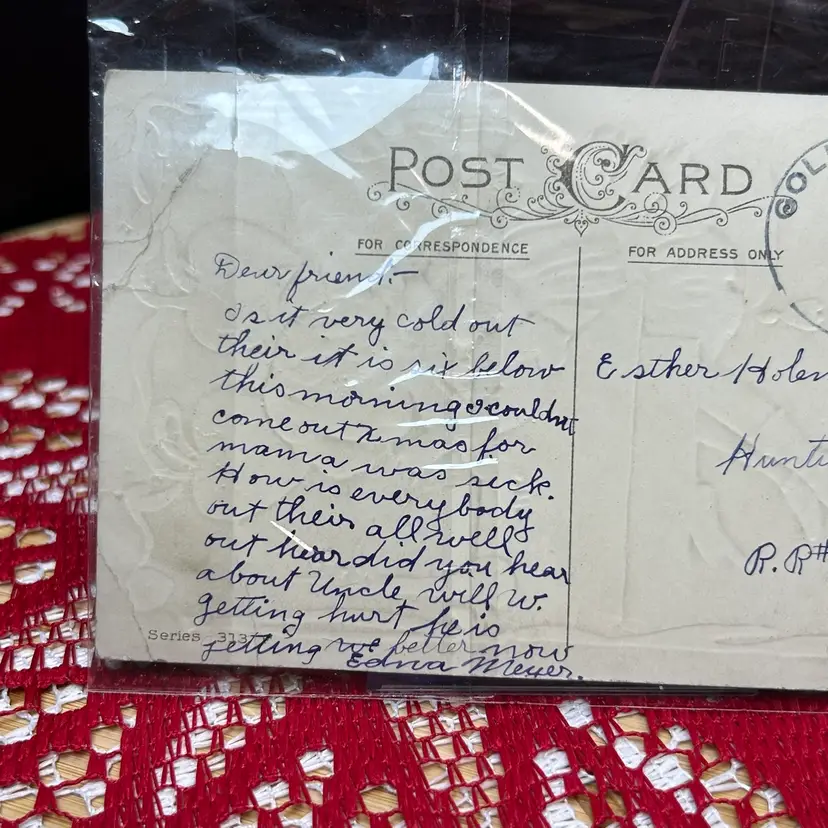 POST CARD
FOR CORRESPONDENCE
FOR ADDRESS ONLY
Dear friend:-
Is it very cold out
their it is six below
this morning I couldnt
come out Xmas for
mama was sick.
How is everybody
out their all well
out hear did you hear
about Uncle Will W.
getting hurt he is
getting better now
Edna Meyer.
Series 313
Esther Holen
Hunti
R. R#
COL